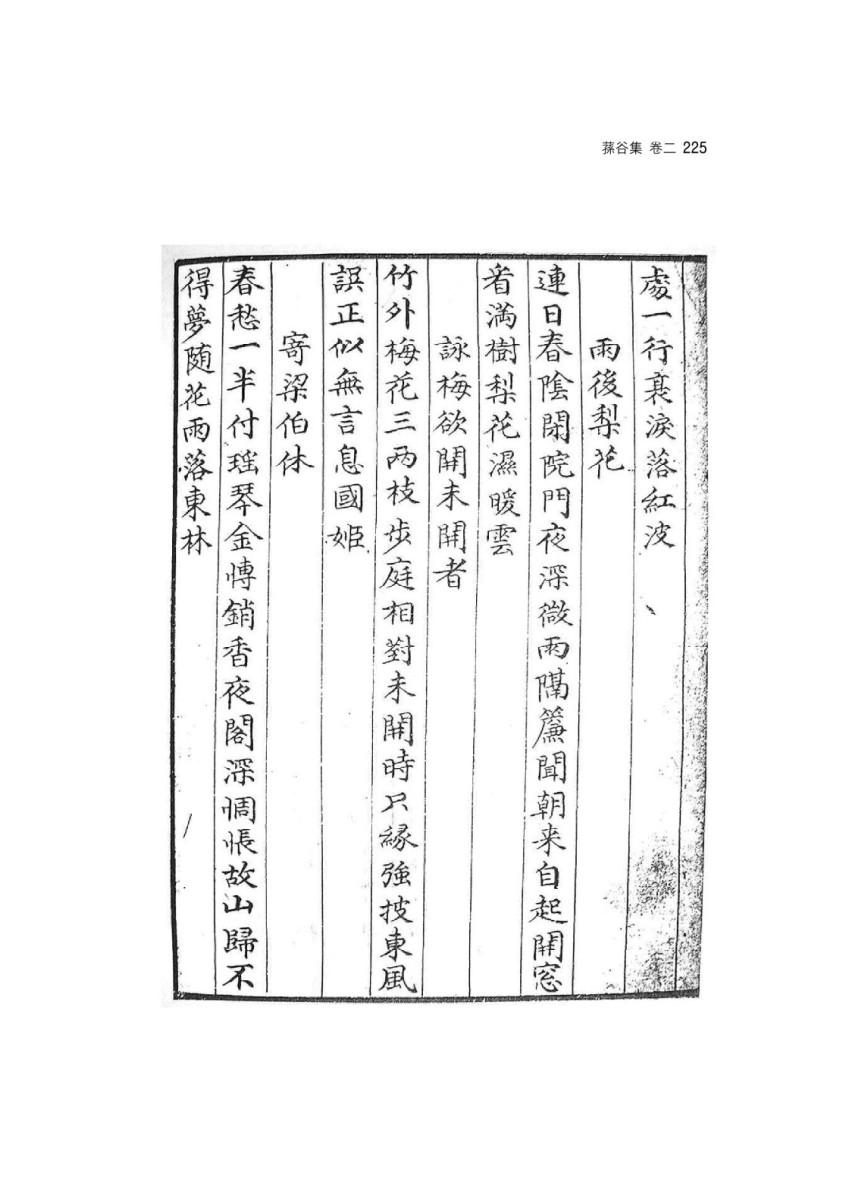 蓀谷集 卷二 225
處一行衰淚落紅波
雨後梨花
連日春陰閉院門夜深微雨隔簾聞朝来自起開窓
看滿樹梨花濕暖雲
詠梅欲開未開者
竹外梅花三兩枝步庭相對未開時只緣強披東風
誤正似無言息國姬
寄梁伯休
春愁一半付瑶琴金慱銷香夜閣深惆悵故山歸不
得夢随花雨落東林